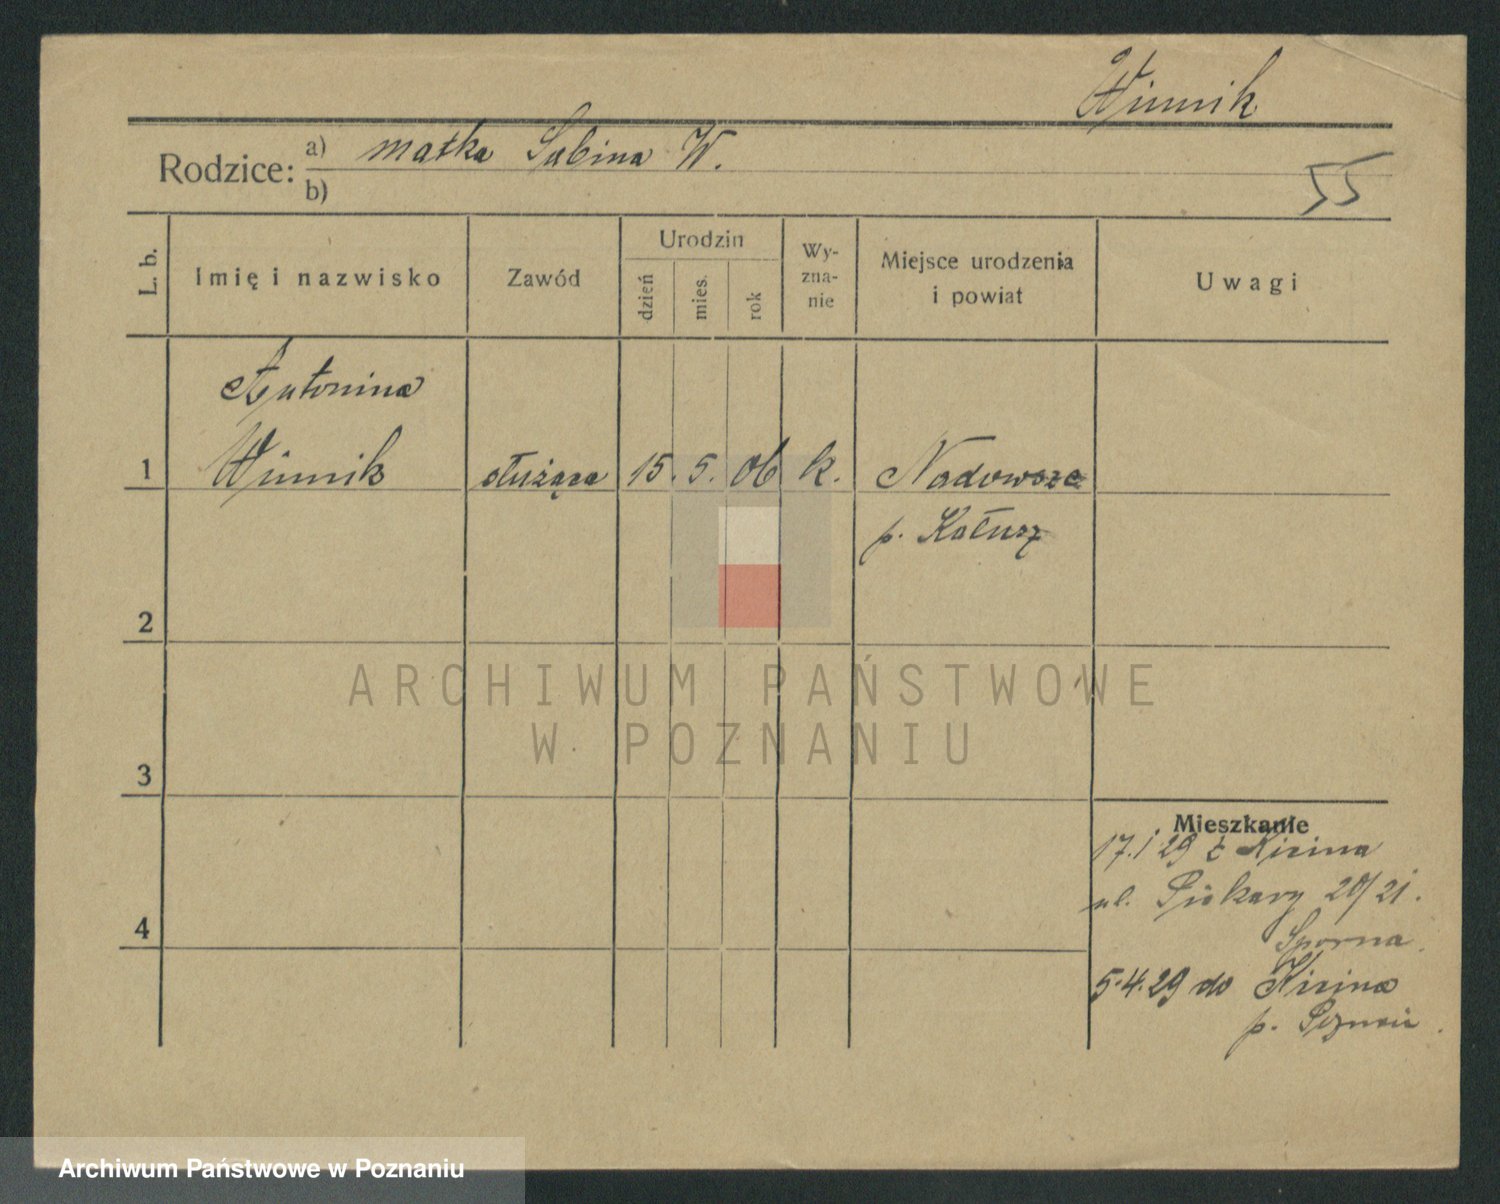 Winnik
Rodzice: a) matka Sabina W.
b)
55
L. b.
Imię i nazwisko
Zawód
Urodzin
dzień
mies.
rok
Wy-
zna-
nie
Miejsce urodzenia
i powiat
Uwagi
Antonina
1 Winnik służąca 15. 5. 06 k. Nadowsze
p. Kałusz
2
3
4
Mieszkanie
17. 1 29 z Kicina
ul. Piekary 20/21.
Sporna
5.4.29 do Kicina
p. Poznań
ARCHIWUM PAŃSTWOWE
W POZNANIU
Archiwum Państwowe w Poznaniu